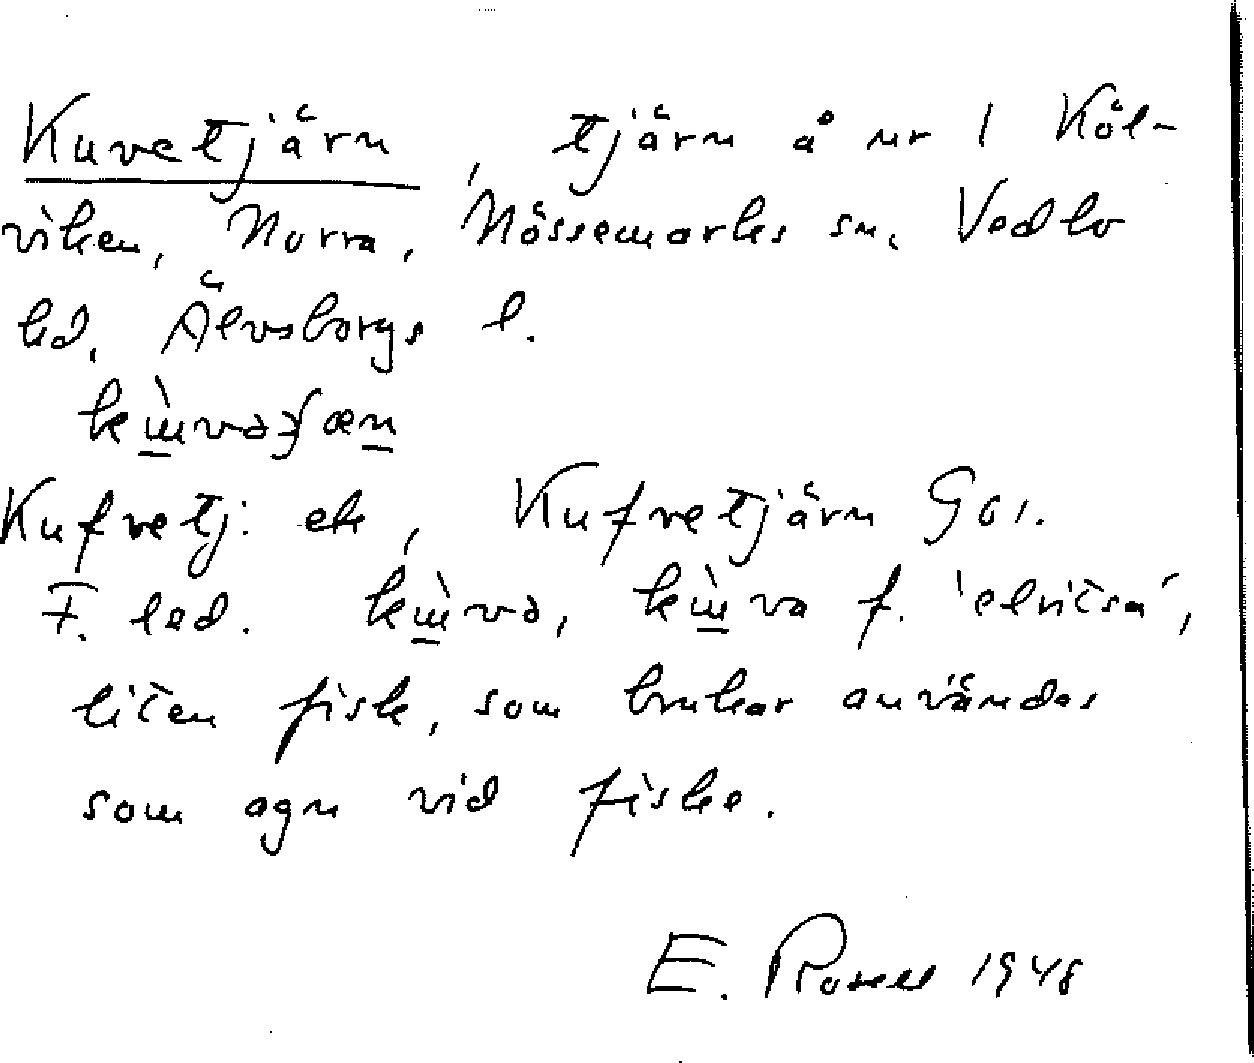 Kuvetjärn, tjärn å nr 1 Köl-
viken, Norra, Nössemarks sn. Vedbo
hd. Älvsborgs l.
Kufvetj: ek, Kufvetjärn GÖI.
F. led. f. 'elritsa',
liten fisk, som brukar användas
som agn vid fiske.
E. Rosell 1948